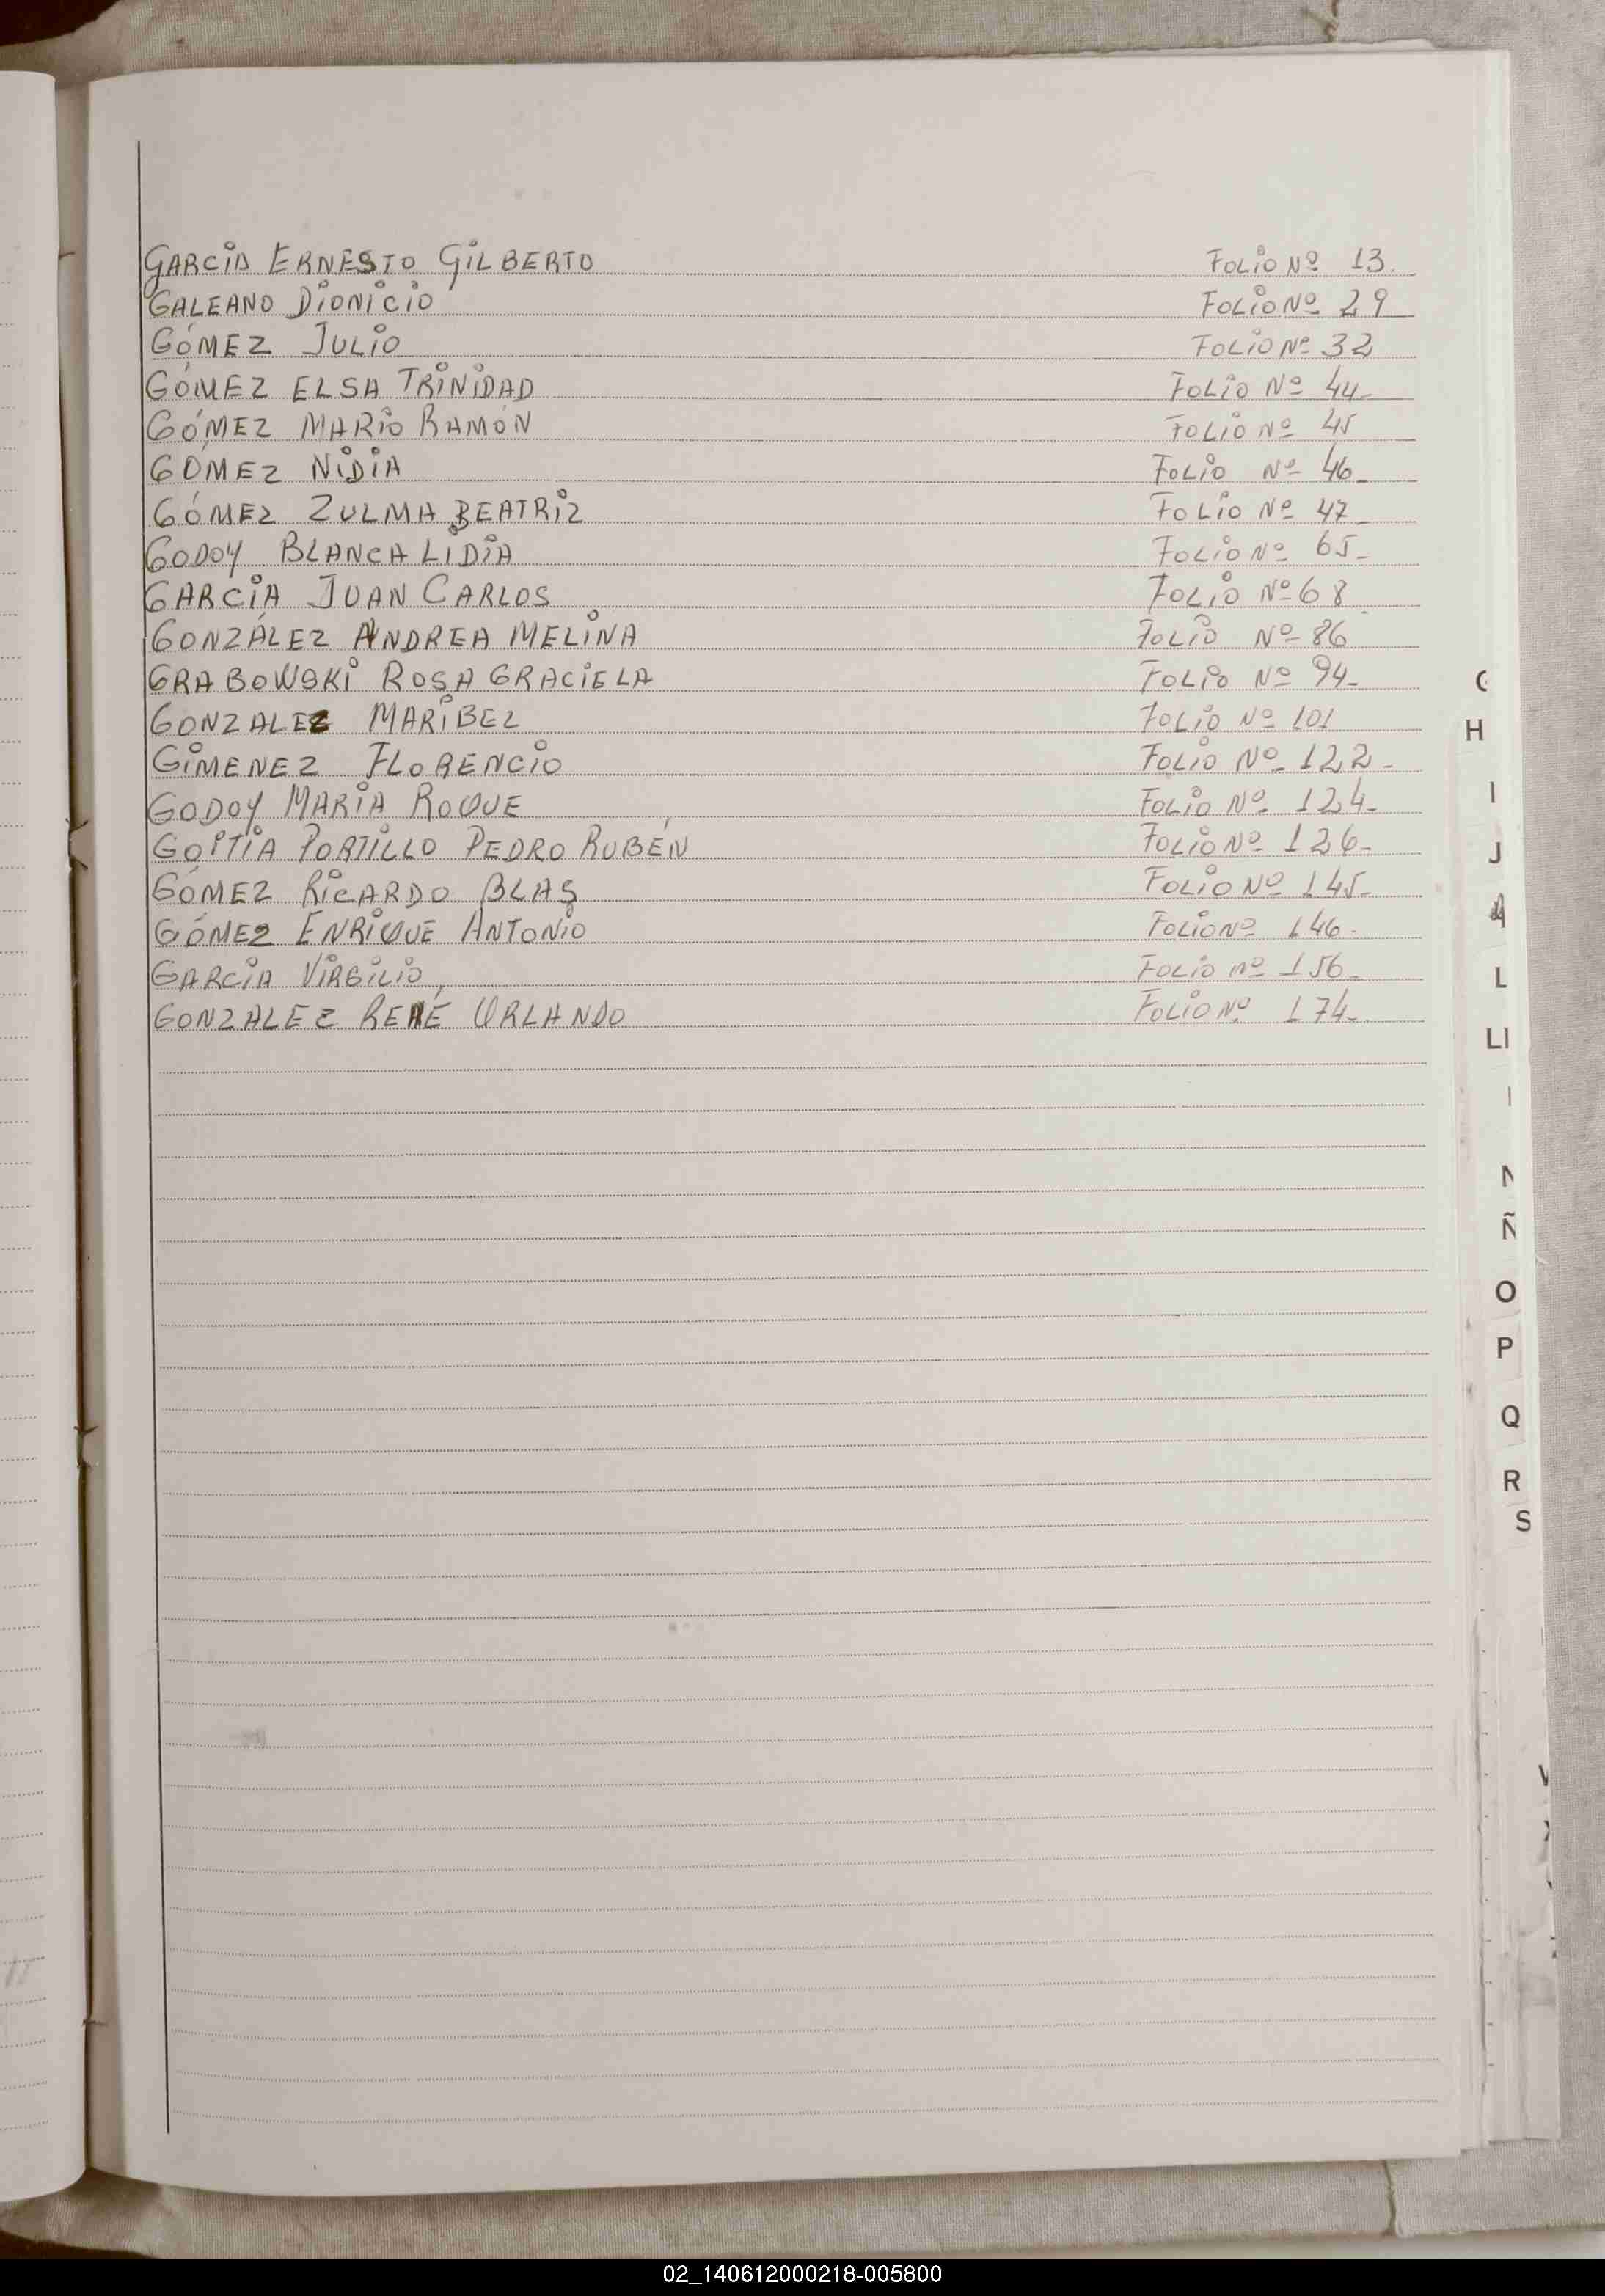 GARCIA ERNESTO GILBERTO FOLIO Nº 13.
GALEANO DIONICIO FOLIO Nº 29
GÓMEZ JULIO FOLIO Nº 32
GÓMEZ ELSA TRINIDAD FOLIO Nº 44-
GÓMEZ MARIO RAMÓN FOLIO Nº 45
GÓMEZ NIDIA FOLIO Nº 46-
GÓMEZ ZULMA BEATRIZ FOLIO Nº 47-
GODOY BLANCA LIDIA FOLIO Nº 65-
GARCIA JUAN CARLOS FOLIO Nº 68
GONZÁLEZ ANDREA MELINA FOLIO Nº 86
GRABOWSKI ROSA GRACIELA FOLIO Nº 94-
GONZALEZ MARIBEL FOLIO Nº 101
GIMENEZ FLORENCIO FOLIO Nº 122-
GODOY MARIA ROQUE FOLIO Nº 124-
GOITIA PORTILLO PEDRO RUBÉN FOLIO Nº 126-
GÓMEZ RICARDO BLAS FOLIO Nº 145-
GÓMEZ ENRIQUE ANTONIO FOLIO Nº 146-
GARCIA VIRGILIO FOLIO Nº 156-
GONZALEZ RENÉ ORLANDO FOLIO Nº 174-
H
I
J
L
Ll
N
Ñ
O
P
Q
R
S
02_140612000218-005800